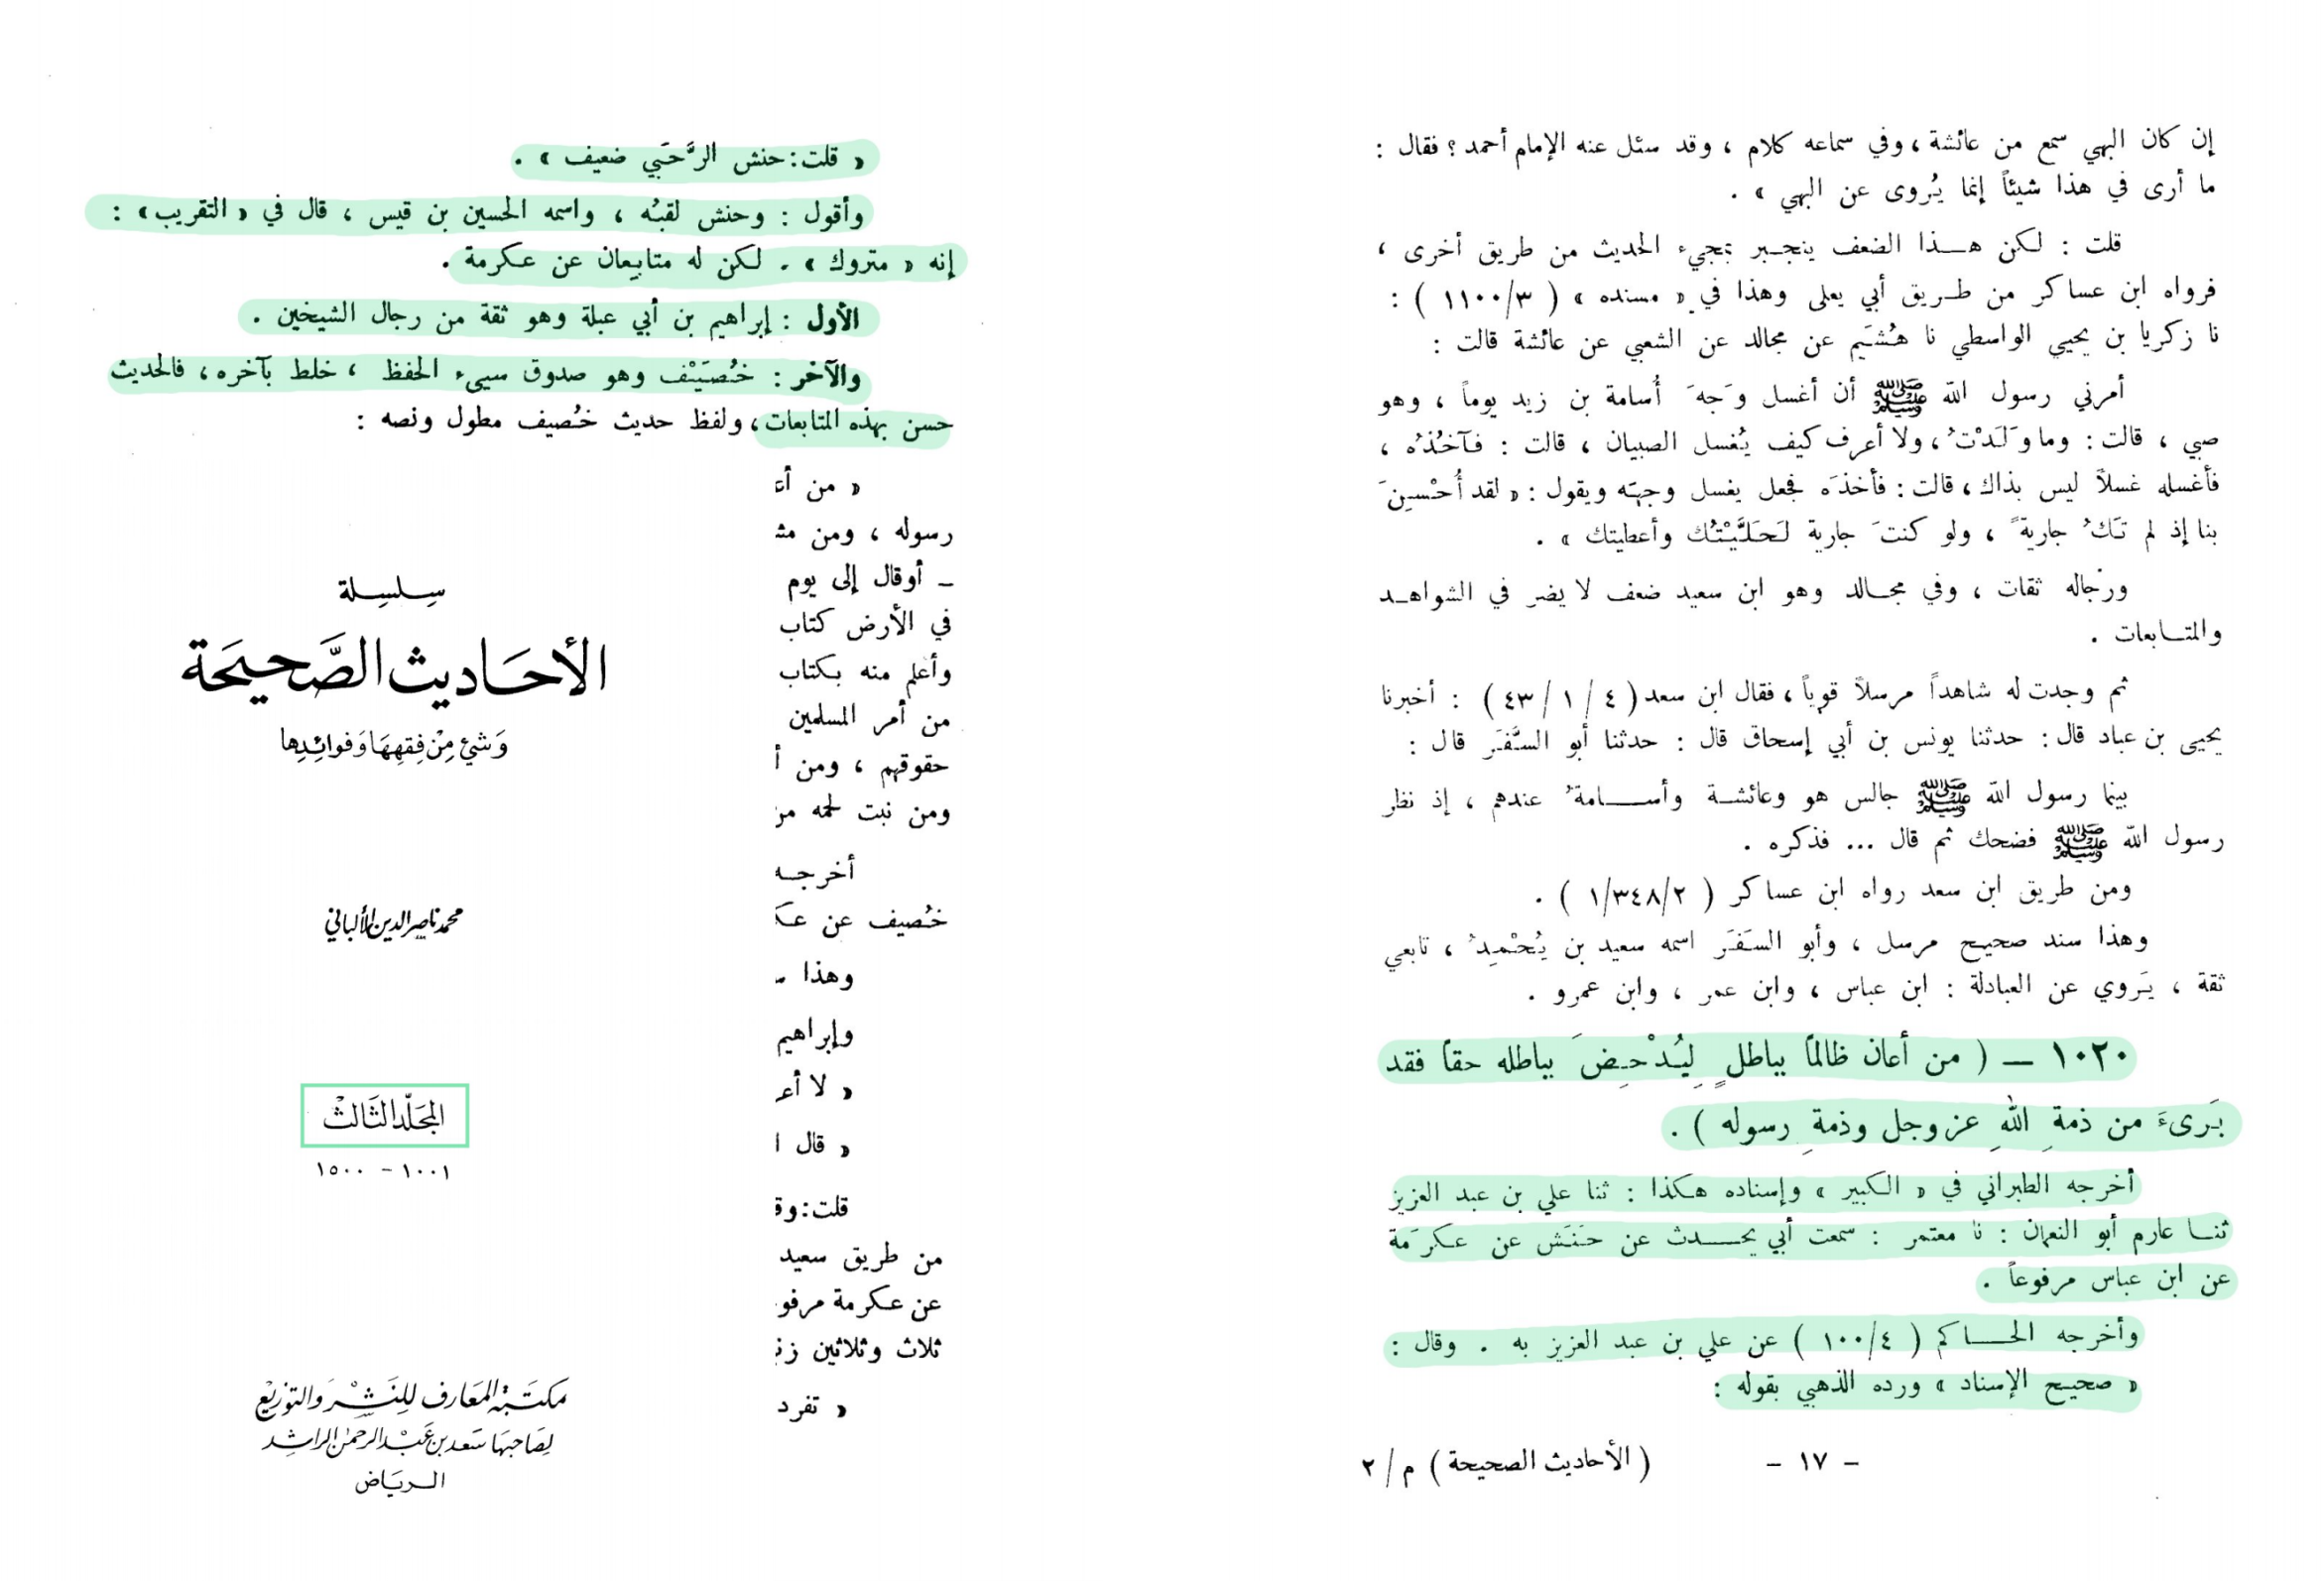 إن كان البهي سمع من عائشة ، وفي سماعه كلام ، وقد سئل عنه الإمام أحمد ؟ فقال :
ما أرى في هذا شيئاً إنما يُروى عن البهي » .
قلت : لكن هـــذا الضعف ينجـبر بمجيء الحديث من طريق أخرى ،
فرواه ابن عساكر من طـريق أبي يعلى وهذا في « مسنده » ( ٣/١١٠٠ ) :
نا زكريا بن يحيى الواسطي نا هُشَيم عن مجالد عن الشعبي عن عائشة قالت :
أمرني رسول الله ﷺ أن أغسل وَجهَ أُسامة بن زيد يوماً ، وهو
صبي ، قالت : وما وَلَدْتُ ، ولا أعرف كيف يُغسل الصبيان ، قالت : فآخُذُه ،
فأغسله غسلاً ليس بذاك ، قالت : فأخذَه فجعل يغسل وجهَه ويقول : « لقد أُحْسِنَ
بنا إذ لم تَكُ جاريةً ، ولو كنتَ جارية لَحَلَّيْتُك وأعطيتك » .
ورجاله ثقات ، وفي مجـالد وهو ابن سعيد ضعف لا يضر في الشواهـد
والمتـابعات .
ثم وجدت له شاهداً مرسلاً قوياً ، فقال ابن سعد ( ٤ / ١ / ٤٣ ) : أخبرنا
يحيى بن عباد قال : حدثنا يونس بن أبي إسحاق قال : حدثنا أبو السَّفَر قال :
بينما رسول الله ﷺ جالس هو وعائشـة وأســامةُ عندهم ، إذ نظر
رسول الله ﷺ فضحك ثم قال ... فذكره .
ومن طريق ابن سعد رواه ابن عساكر ( ٢/٣٤٨/١ ) .
وهذا سند صحيح مرسل ، وأبو السَفَر اسمه سعيد بن يُحْمِدُ ، تابعي
ثقة ، يَروي عن العبادلة : ابن عباس ، وابن عمر ، وابن عمرو .
١٠٢٠ — ( من أعان ظالماً بباطلٍ لِيُدْحِضَ بباطله حقاً فقد
بَرىءَ من ذمةِ اللهِ عز وجل وذمةِ رسوله ) .
أخرجه الطبراني في « الكبير » وإسناده هكذا : ثنا علي بن عبد العزيز
ثنــا عارم أبو النعمان : نا معتمر : سمعت أبي يحــدث عن حَنَش عن عكرَمة
عن ابن عباس مرفوعاً .
وأخرجه الحــاكم ( ٤/١٠٠ ) عن علي بن عبد العزيز به . وقال :
« صحيح الإسناد » ورده الذهبي بقوله :
- ١٧ -
( الأحاديث الصحيحة ) م/ ٢
« قلت : حنش الرَّحَبي ضعيف » .
وأقول : وحنش لقبُه ، واسمه الحسين بن قيس ، قال في « التقريب » :
إنه « متروك » . لكن له متابعان عن عكرمة .
الأول : إبراهيم بن أبي عبلة وهو ثقة من رجال الشيخين .
والآخر : خُصَيْف وهو صدوق سيىء الحفظ ، خلط بآخره ، فالحديث
حسن بهذه المتابعات ، ولفظ حديث خُصيف مطول ونصه :
« من أع
رسوله ، ومن مش
ـ أوقال إلى يوم
في الأرض كتاب
وأعلم منه بكتاب
من أمر المسلمين
حقوقهم ، ومن أ
ومن نبت لحمه من
أخرجـه
خُصيف عن عك
وهذا
وإبراهيم
« لا أعر
« قال ا
قلت : وق
من طريق سعيد
عن عكرمة مرفو
ثلاث وثلاثين زن
« تفرد
سِلسِلة
الأحَاديث الصَّحيحَة
وَشَيْءٌ مِنْ فِقهِهَا وَفَوَائِدِهَا
محمد ناصر الدين الألباني
المجَلّد الثَالثْ
١٠٠١ - ١٥٠٠
مكتَبة المعَارف لِلنَشْر وَالتوزيع
لِصَاحِبهَا سَعد بن عَبْد الرحمٰن الراشِد
الـريَاض